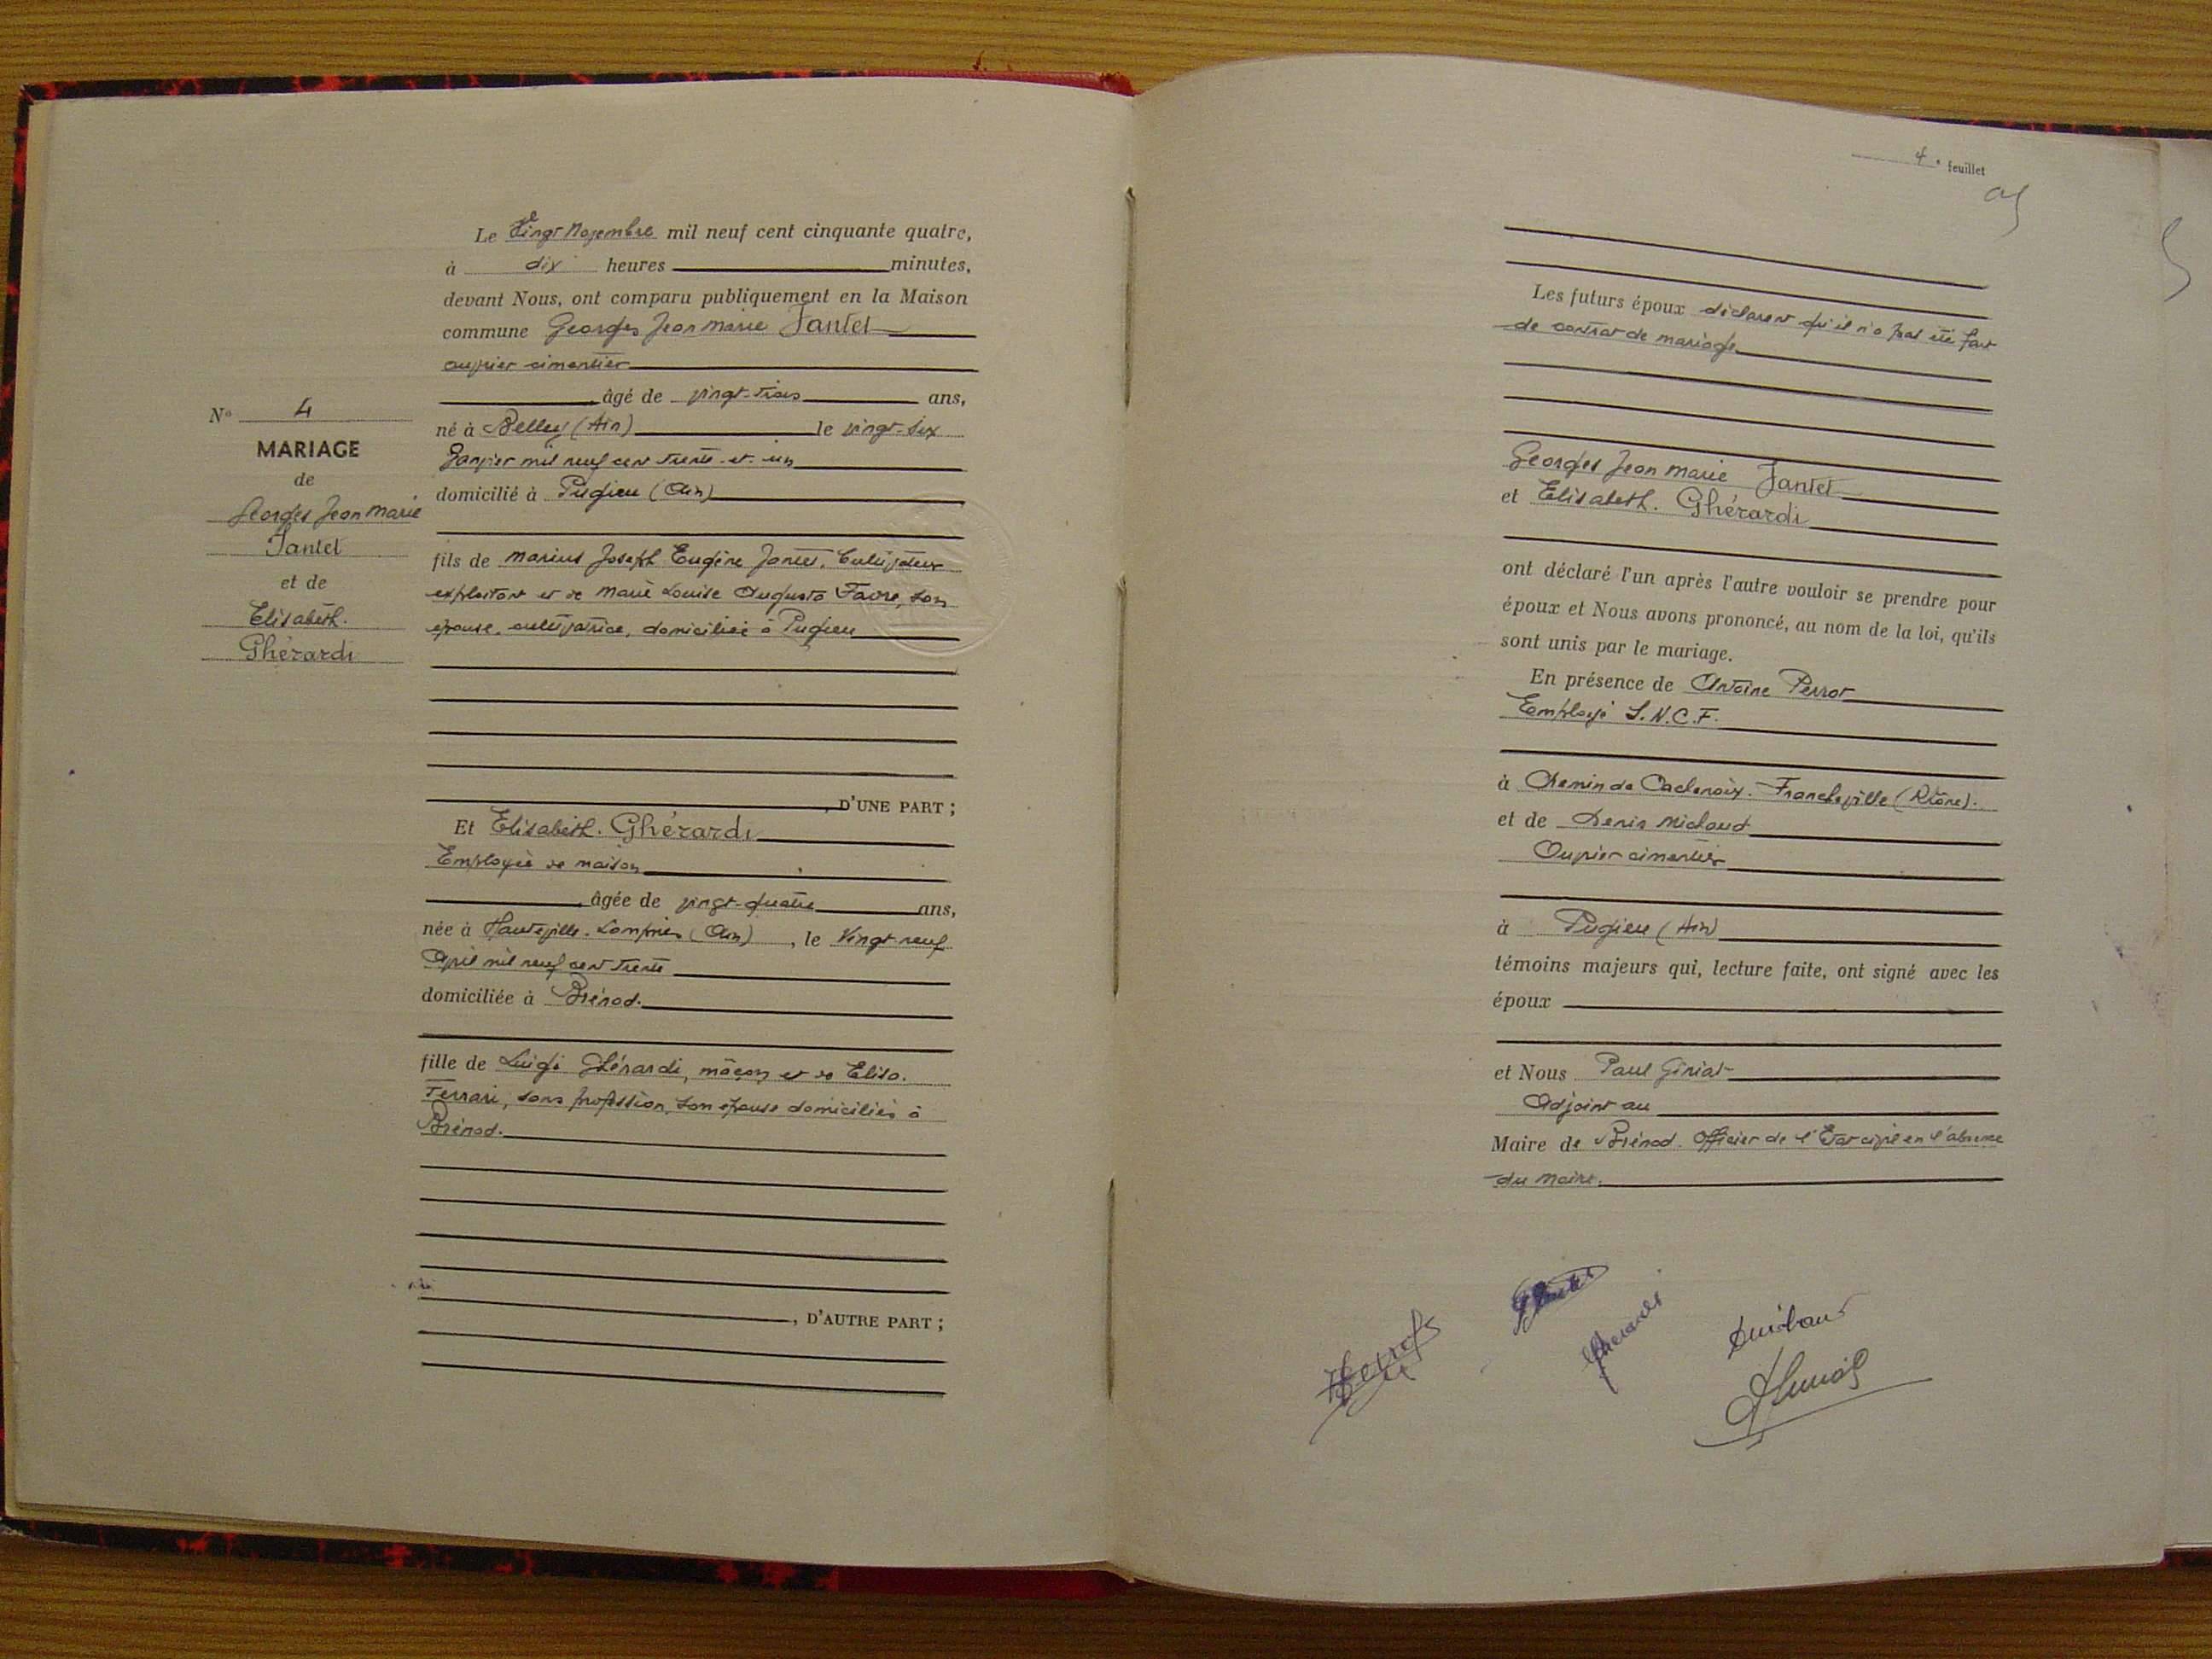 Le Vingt Novembre mil neuf cent cinquante quatre,
à dix heures minutes,
devant Nous, ont comparu publiquement en la Maison
commune Georges Jean Marie Jantet
ouvrier cimentier
âgé de vingt-trois ans,
né à Belley (Ain) le vingt-six
Janvier mil neuf cent trente-et-un
domicilié à Pugieu (Ain)
N° 4
MARIAGE
de
Georges Jean Marie
Jantet
et de
Elisabeth.
Ghérardi
fils de Marius Joseph Eugène Jantet, Cultivateur
exploitant et de Marie Louise Augusta Favre, son
épouse, cultivatrice, domiciliés à Pugieu
, D'UNE PART ;
Et Elisabeth. Ghérardi
Employée de maison
âgée de vingt-quatre ans,
née à Hauteville-Lompnes (Ain), le Vingt-neuf
Avril mil neuf cent trente
domiciliée à Brénod.
fille de Luigi Ghérardi, maçon et de Elisa.
Ferrari, sans profession, son épouse domiciliés à
Brénod.
, D'AUTRE PART ;
4e feuillet
Les futurs époux déclarent qu'il n'a pas été fait
de contrat de mariage
Georges Jean Marie Jantet
et Elisabeth. Ghérardi
ont déclaré l'un après l'autre vouloir se prendre pour
époux et Nous avons prononcé, au nom de la loi, qu'ils
sont unis par le mariage.
En présence de Antoine Perrot
Employé S.N.C.F.
à Chemin de - Francheville (Rhône).
et de Denis Michaud
Ouvrier cimentier
à Pugieu (Ain)
témoins majeurs qui, lecture faite, ont signé avec les
époux
et Nous Paul
Adjoint au
Maire de Brénod. Officier de l'Etat civil en l'absence
du Maire.
Gherardi